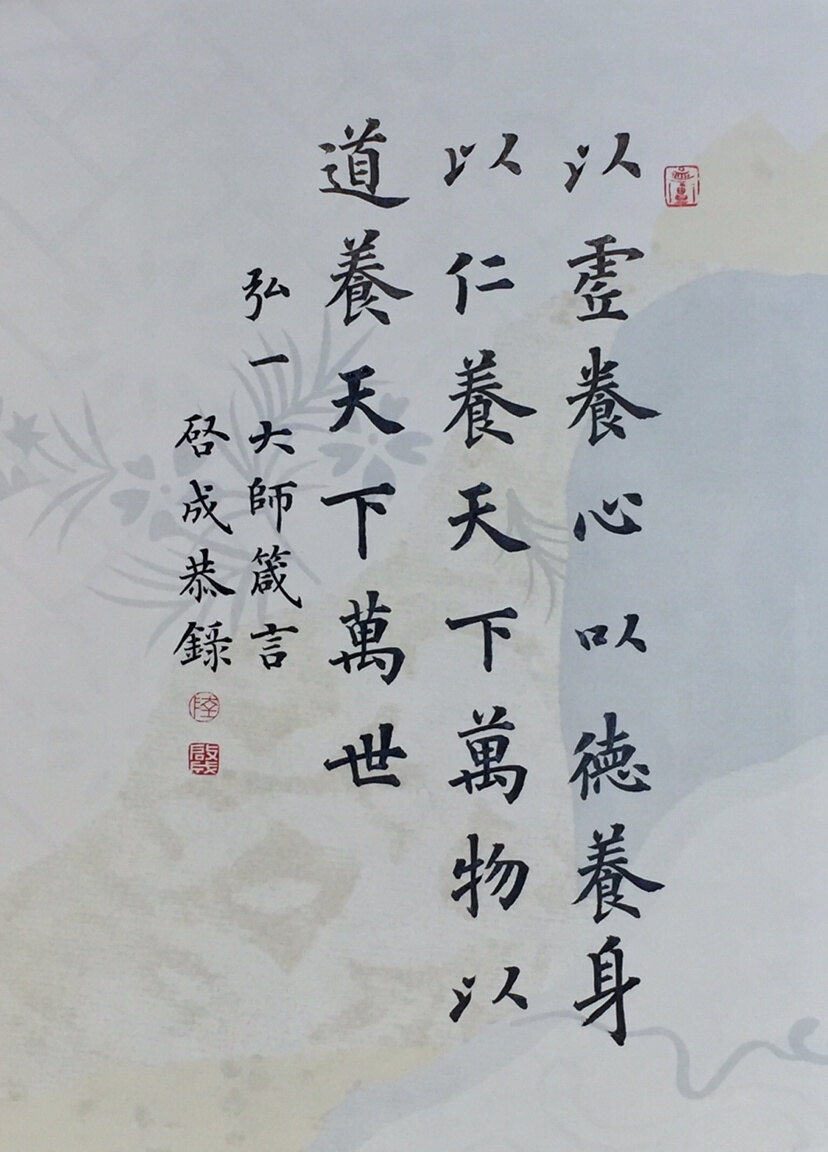 以虛養心以德養身
以仁養天下萬物以
道養天下萬世
弘一大師箴言
啓成恭錄
陸
啟成